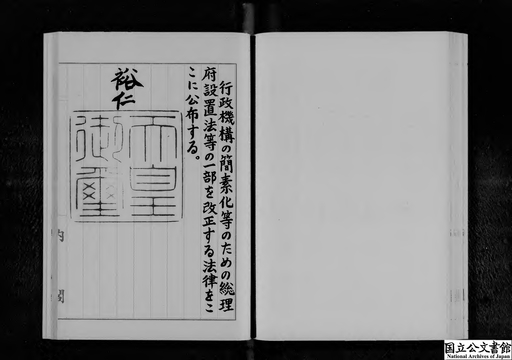 行政機構の簡素化等のための総理
府設置法等の一部を改正する法律をこ
こに公布する。
裕仁
天皇
御璽
内閣
国立公文書館
National Archives of Japan